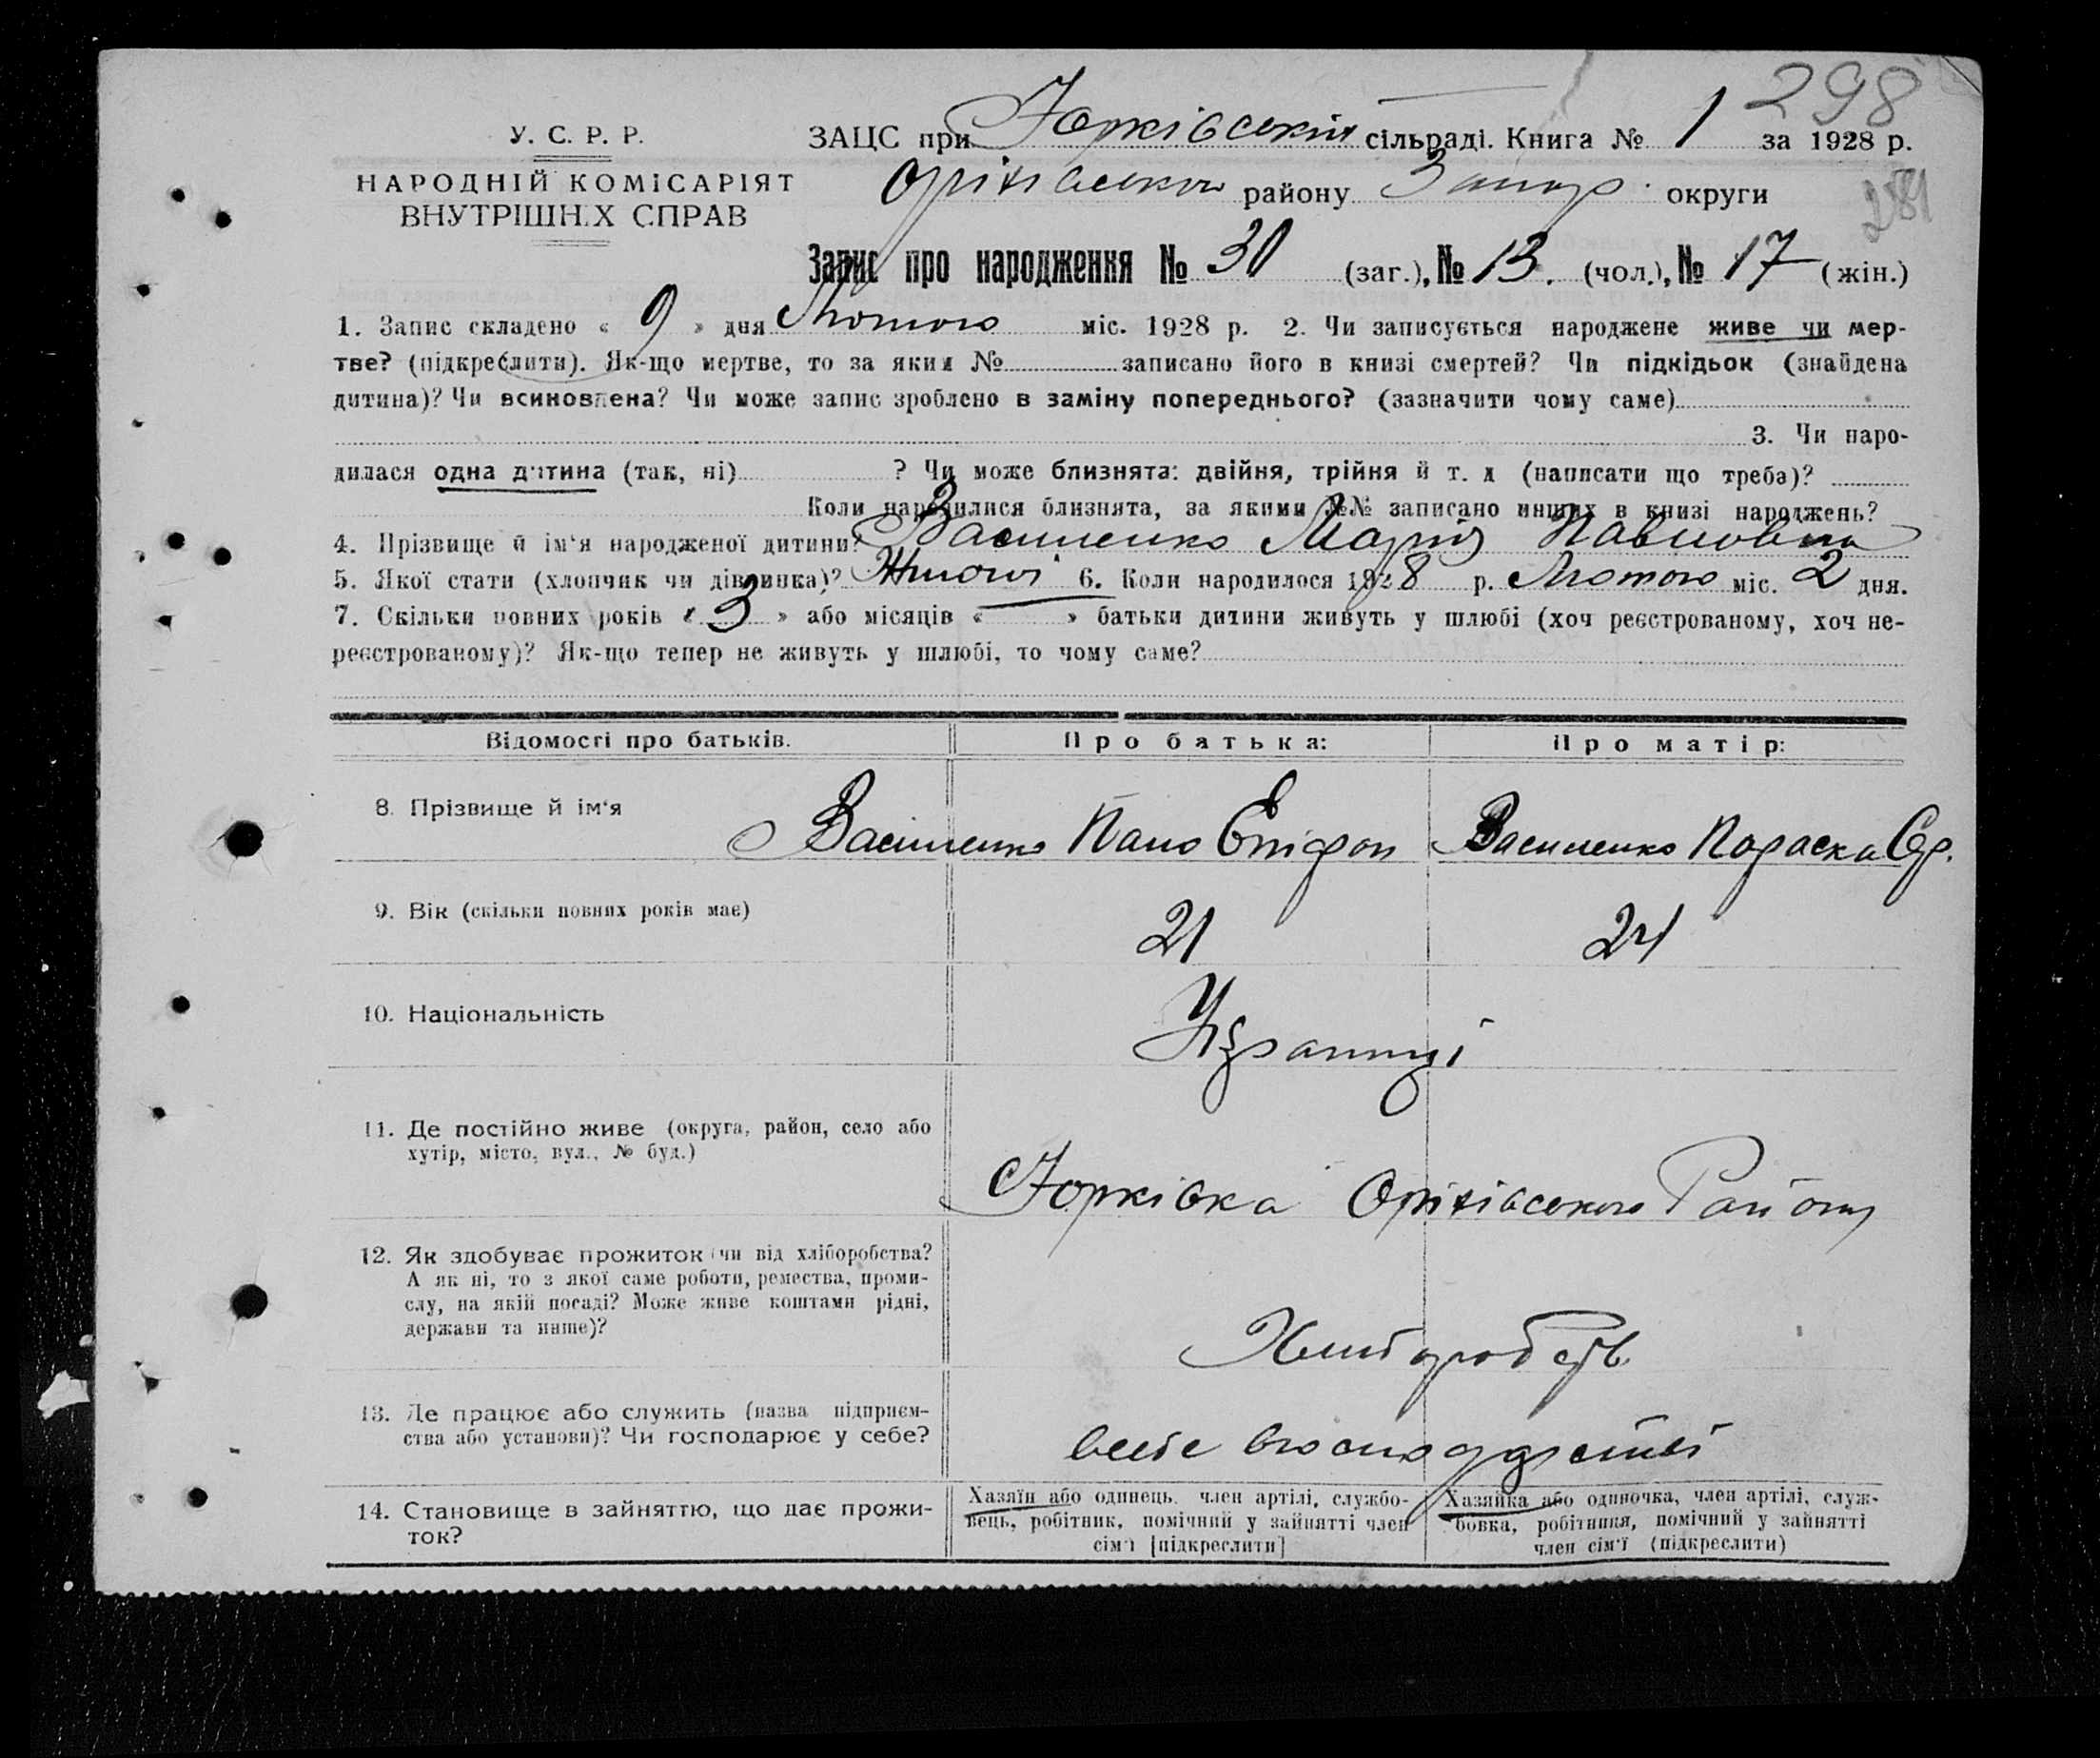 298
У. С. Р. Р.
НАРОДНІЙ КОМІСАРІЯТ
ВНУТРІШНІХ СПРАВ
ЗАЦС при Юрківській сільраді. Книга № 1 за 1928 р.
Оріхівського району Запор. округи
Запис про народження № 30 (заг.), № 13. (чол.), № 17 (жін.)
1. Запис складено « 9 » дня Лютого міс. 1928 р. 2. Чи записується народжене живе чи мер-
тве? (підкреслити). Як-що мертве, то за яким № записано його в книзі смертей? Чи підкідьок (знайдена
дитина)? Чи всиновлена? Чи може запис зроблено в заміну попереднього? (зазначити чому саме)
3. Чи наро-
дилася одна дитина (так, ні) ? Чи може близнята: двійня, трійня й т. д (написати що треба)?
Коли народилися близнята, за якими №№ записано инших в книзі народжень?
4. Прізвище й ім'я народженої дитини? Василенко Марія Павловна
5. Якої стати (хлопчик чи дівчинка)? Жіночі 6. Коли народилося 1928 р. Лютого міс. 2 дня.
7. Скільки повних років « 3 » або місяців « — » батьки дитини живуть у шлюбі (хоч реєстрованому, хоч не-
реєстрованому)? Як-що тепер не живуть у шлюбі, то чому саме?
Відомості про батьків.
Про батька:
Про матір:
8. Прізвище й ім'я
Василенко Павло Епіфан
Василенко Параска
9. Вік (скільки повних років має)
21
24
10. Національність
Українці
11. Де постійно живе (округа, район, село або
хутір, місто, вул., № буд.)
Юрківка Оріхівського Району
12. Як здобуває прожиток (чи від хліборобства?
А як ні, то з якої саме роботи, ремества, проми-
слу, на якій посаді? Може живе коштами рідні,
держави та инше)?
Хліборобств.
13. Де працює або служить (назва підприєм-
ства або установи)? Чи господарює у себе?
всебе вгосподарстві
14. Становище в зайняттю, що дає прожи-
ток?
Хазяїн або одинець, член артілі, службо-
вець, робітник, помічний у зайнятті член
сім'ї [підкреслити]
Хазяйка або одиночка, член артілі, служ-
бовка, робітниця, помічний у зайнятті
член сім'ї (підкреслити)